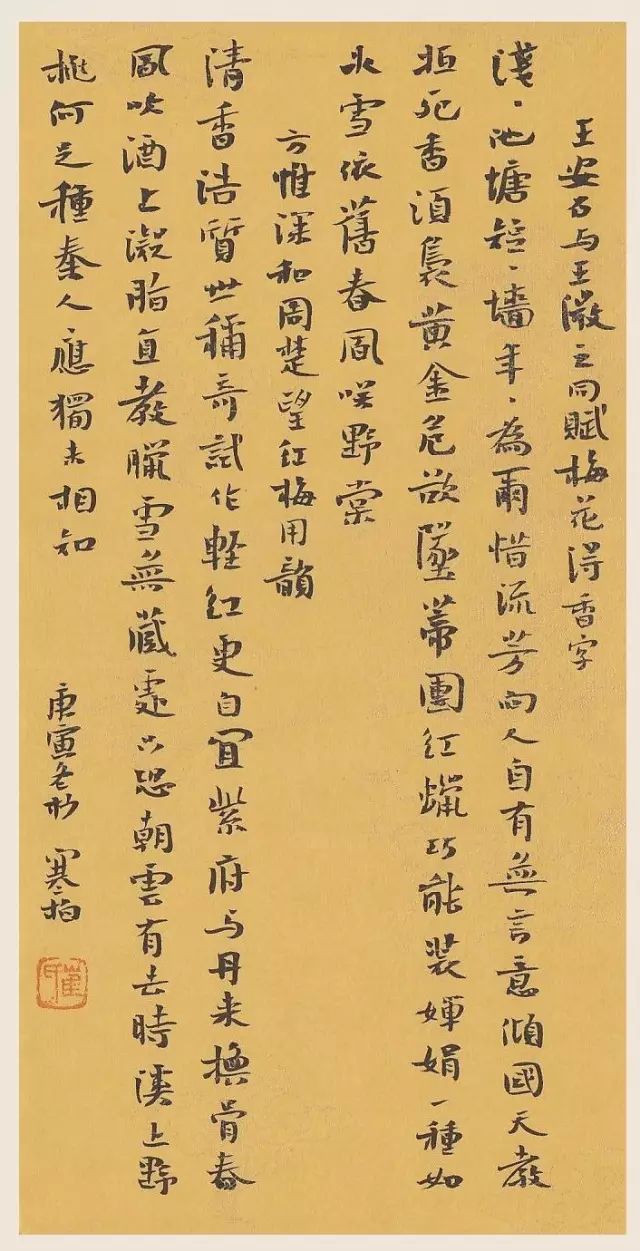 王安石与王微之同賦梅花淂香字
淺、池塘短、墻年、為爾惜流芳向人自有無言意傾國天教
抵死香須裊黄金危欲墜蒂團紅蠟巧能裝嬋娟一種如
氷雪依舊春風咲野棠
方惟深和周楚望紅梅用韻
清香浩質世稱奇試作輕紅更自宜紫府与丹来換骨春
風吹酒上凝脂直教臘雪無藏處只恐朝雲有去時溪上野
桃何足種秦人應獨未相知
庚寅冬 寒柏